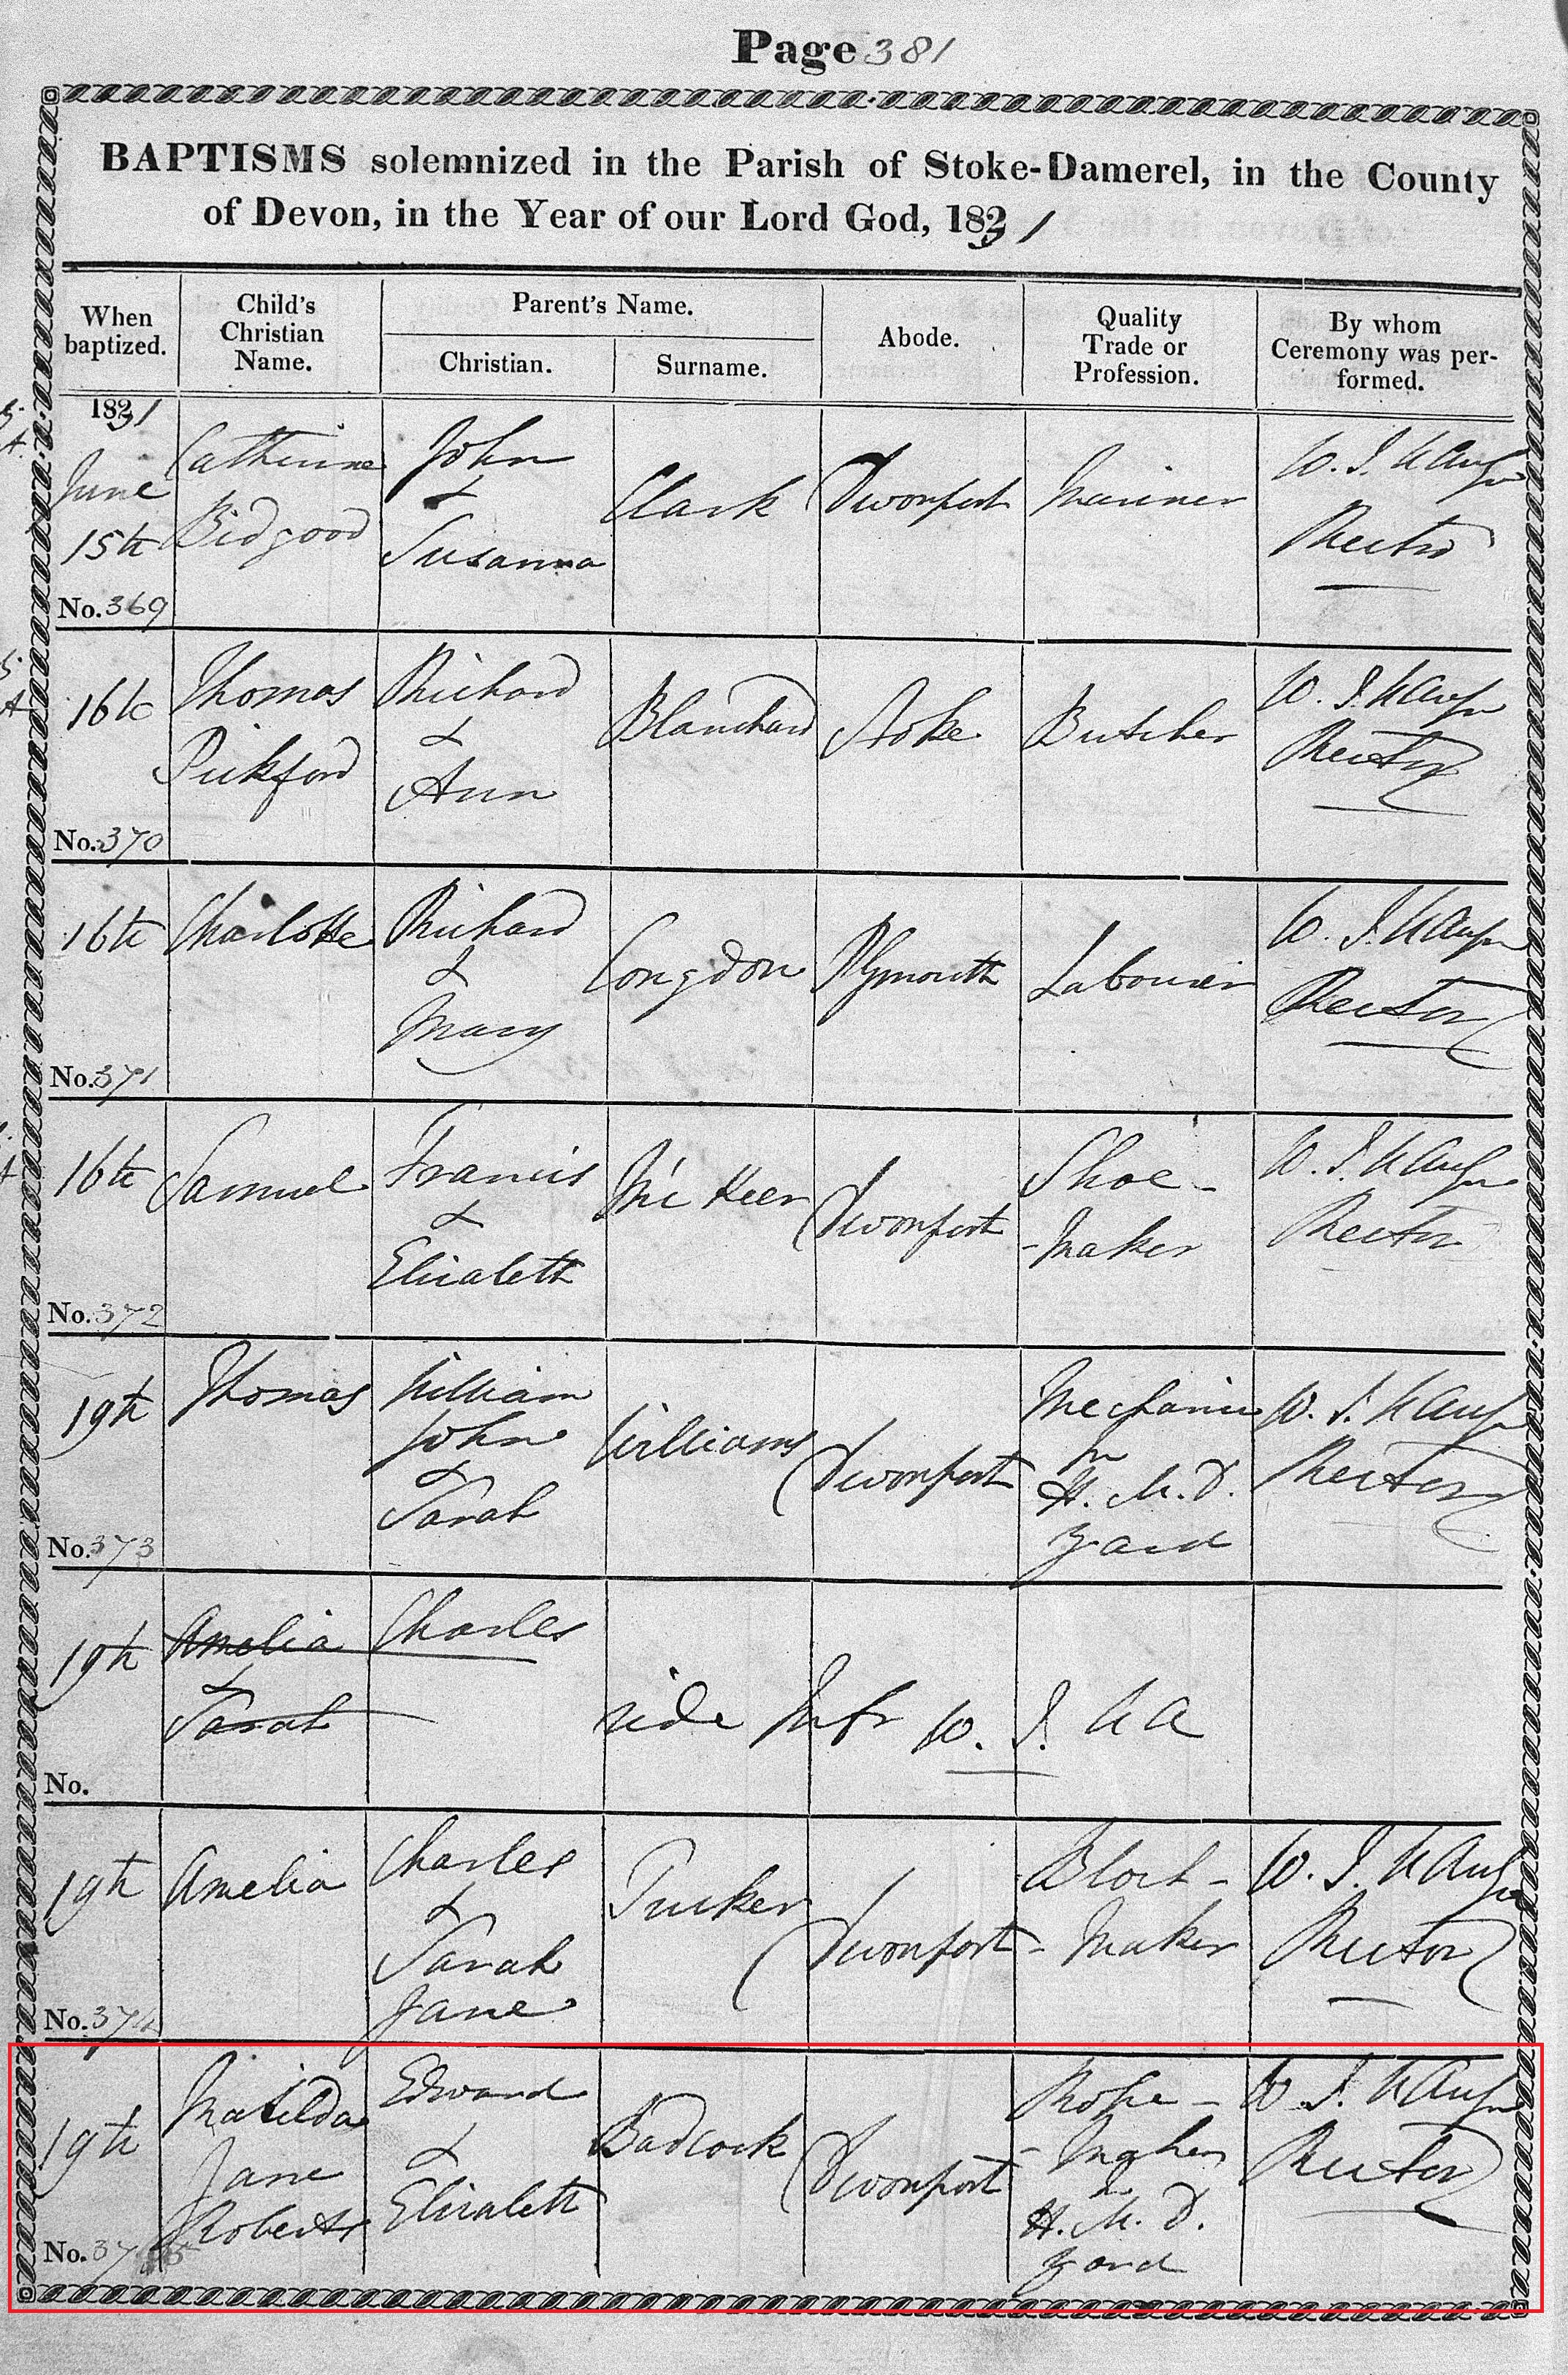 Page 381
BAPTISMS solemnized in the Parish of Stoke-Damerel, in the County
of Devon, in the Year of our Lord God, 1831
When baptized.
Child's Christian Name.
Parent's Name.
Christian.
Surname.
Abode.
Quality Trade or Profession.
By whom Ceremony was per-formed.
1831
June
15th
No. 369
Catherine
Bidgood
John
&
Susanna
Clark
Devonport
Mariner
W. J.
Rector
16th
No. 370
Thomas
Pickford
Richard
&
Ann
Blanchard
Stoke
Butcher
W. J.
Rector
16th
No. 371
Charlotte
Richard
&
Mary
Congdon
Plymouth
Labourer
W. J.
Rector
16th
No. 372
Samuel
Francis
&
Elizabeth
Devonport
Shoe-
-Maker
W. J.
Rector
19th
No. 373
Thomas
William
John
&
Sarah
Williams
Devonport
Mechanic
in
H. M. D.
Yard
W. J.
Rector
19th
No.
Amelia
&
Sarah
Charles
vide W. J.
19th
No. 374
Amelia
Charles
&
Sarah
Jane
Tucker
Devonport
Block-
-Maker
W. J.
Rector
19th
No. 375
Matilda
Jane
Roberts
Edward
&
Elizabeth
Badcock
Devonport
Rope-
-Maker
H. M. D.
Yard
W. J.
Rector